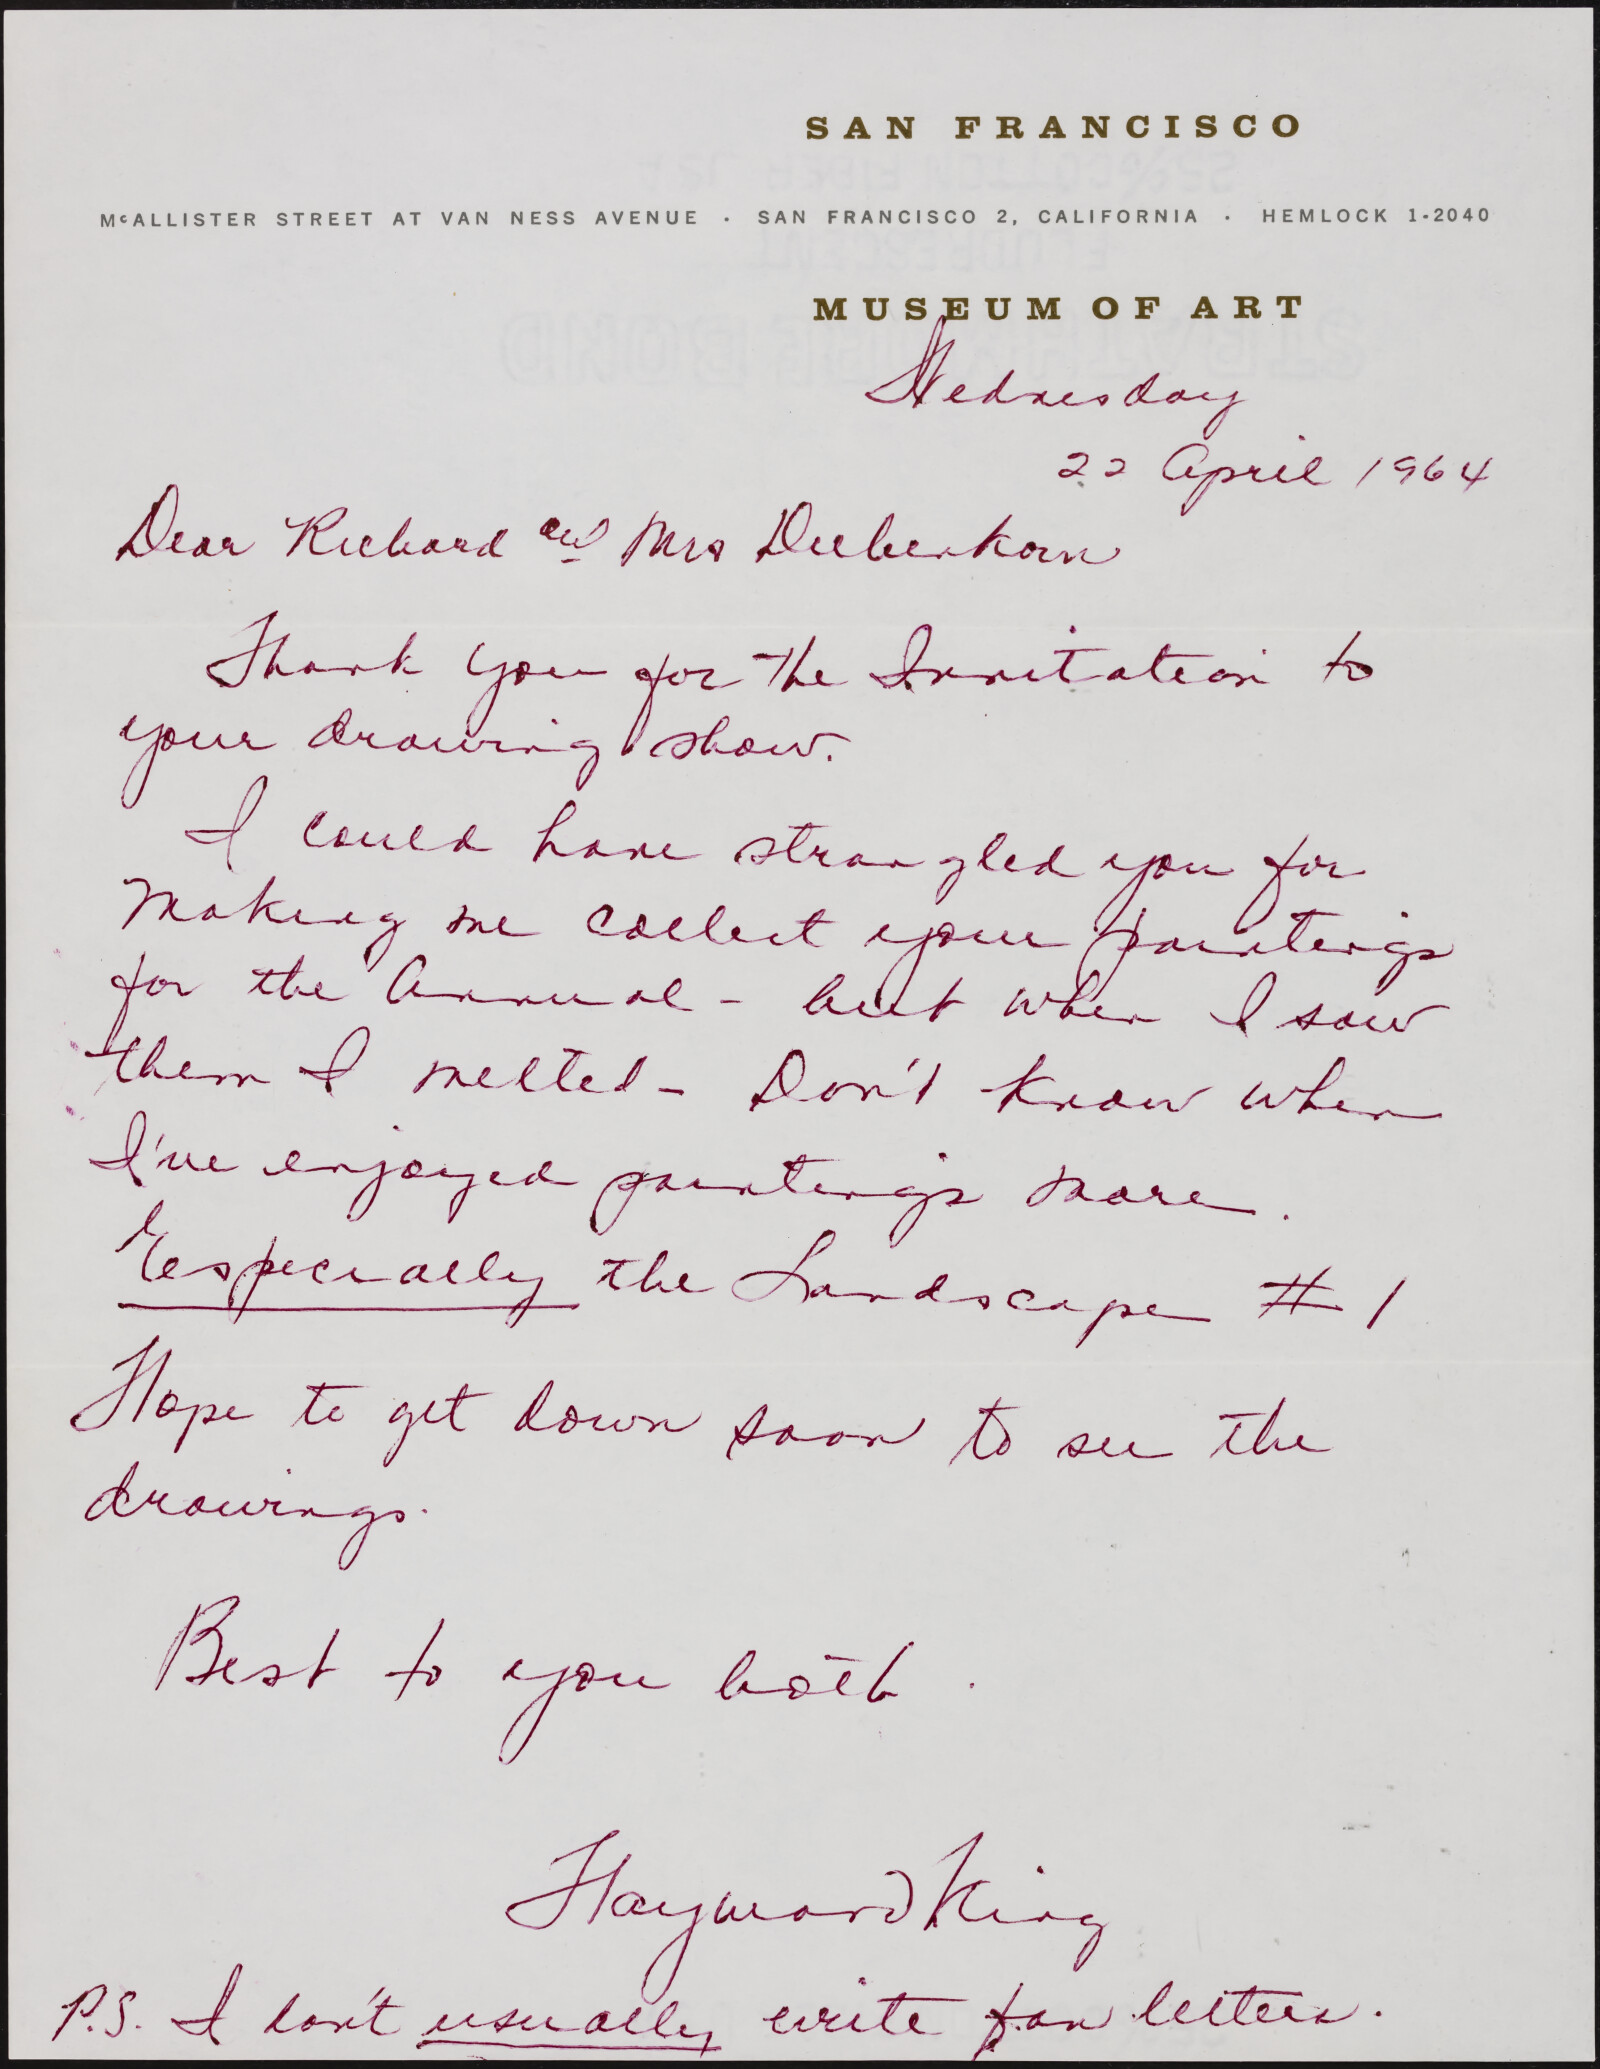 SAN FRANCISCO
McALLISTER STREET AT VAN NESS AVENUE · SAN FRANCISCO 2, CALIFORNIA · HEMLOCK 1-2040
MUSEUM OF ART
Wednesday
22 April 1964
Dear Richard and Mrs Diebenkorn
Thank you for the Invitation to
your drawing show.
I could have strangled you for
making me collect your paintings
for the Annual - but when I saw
them I melted - Don't know when
I've enjoyed paintings more.
Especially the Landscape # 1
Hope to get down soon to see the
drawings.
Best to you both.
Hayward King
P.S. I don't usually write fan letters.